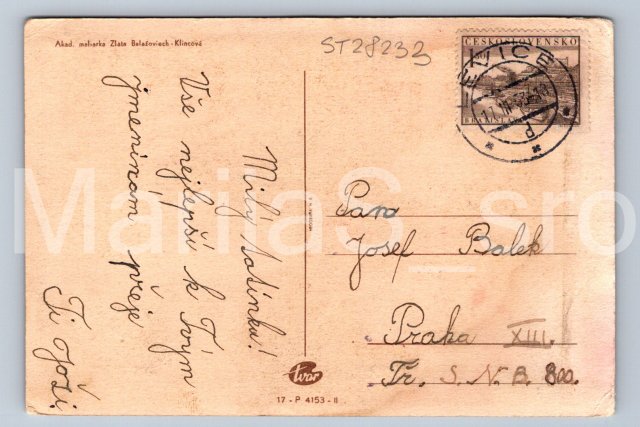 Akad. maliarka Zlata Balažovjech - Klincová
ST28233
ČESKOSLOVENSKO
LEVICE
Milý tatínku!
Vše nejlepší k Tvým
jmeninám přeje
Pan
Josef Balek
Praha XIII.
Tr. S. N. B. 800.
tvar
17 - P 4153 - II
MarijaS_sro